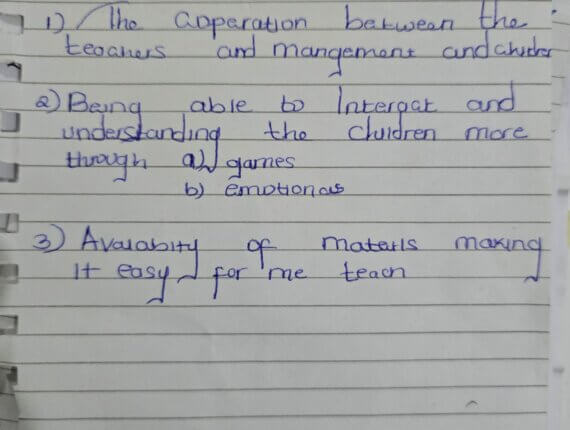 1) The apparation between the
teachers and mangement and
2) Being able to Intergat and
understanding the children more
through a) games
b) emotionas
3) Avalabity of materls making
It easy for me teach